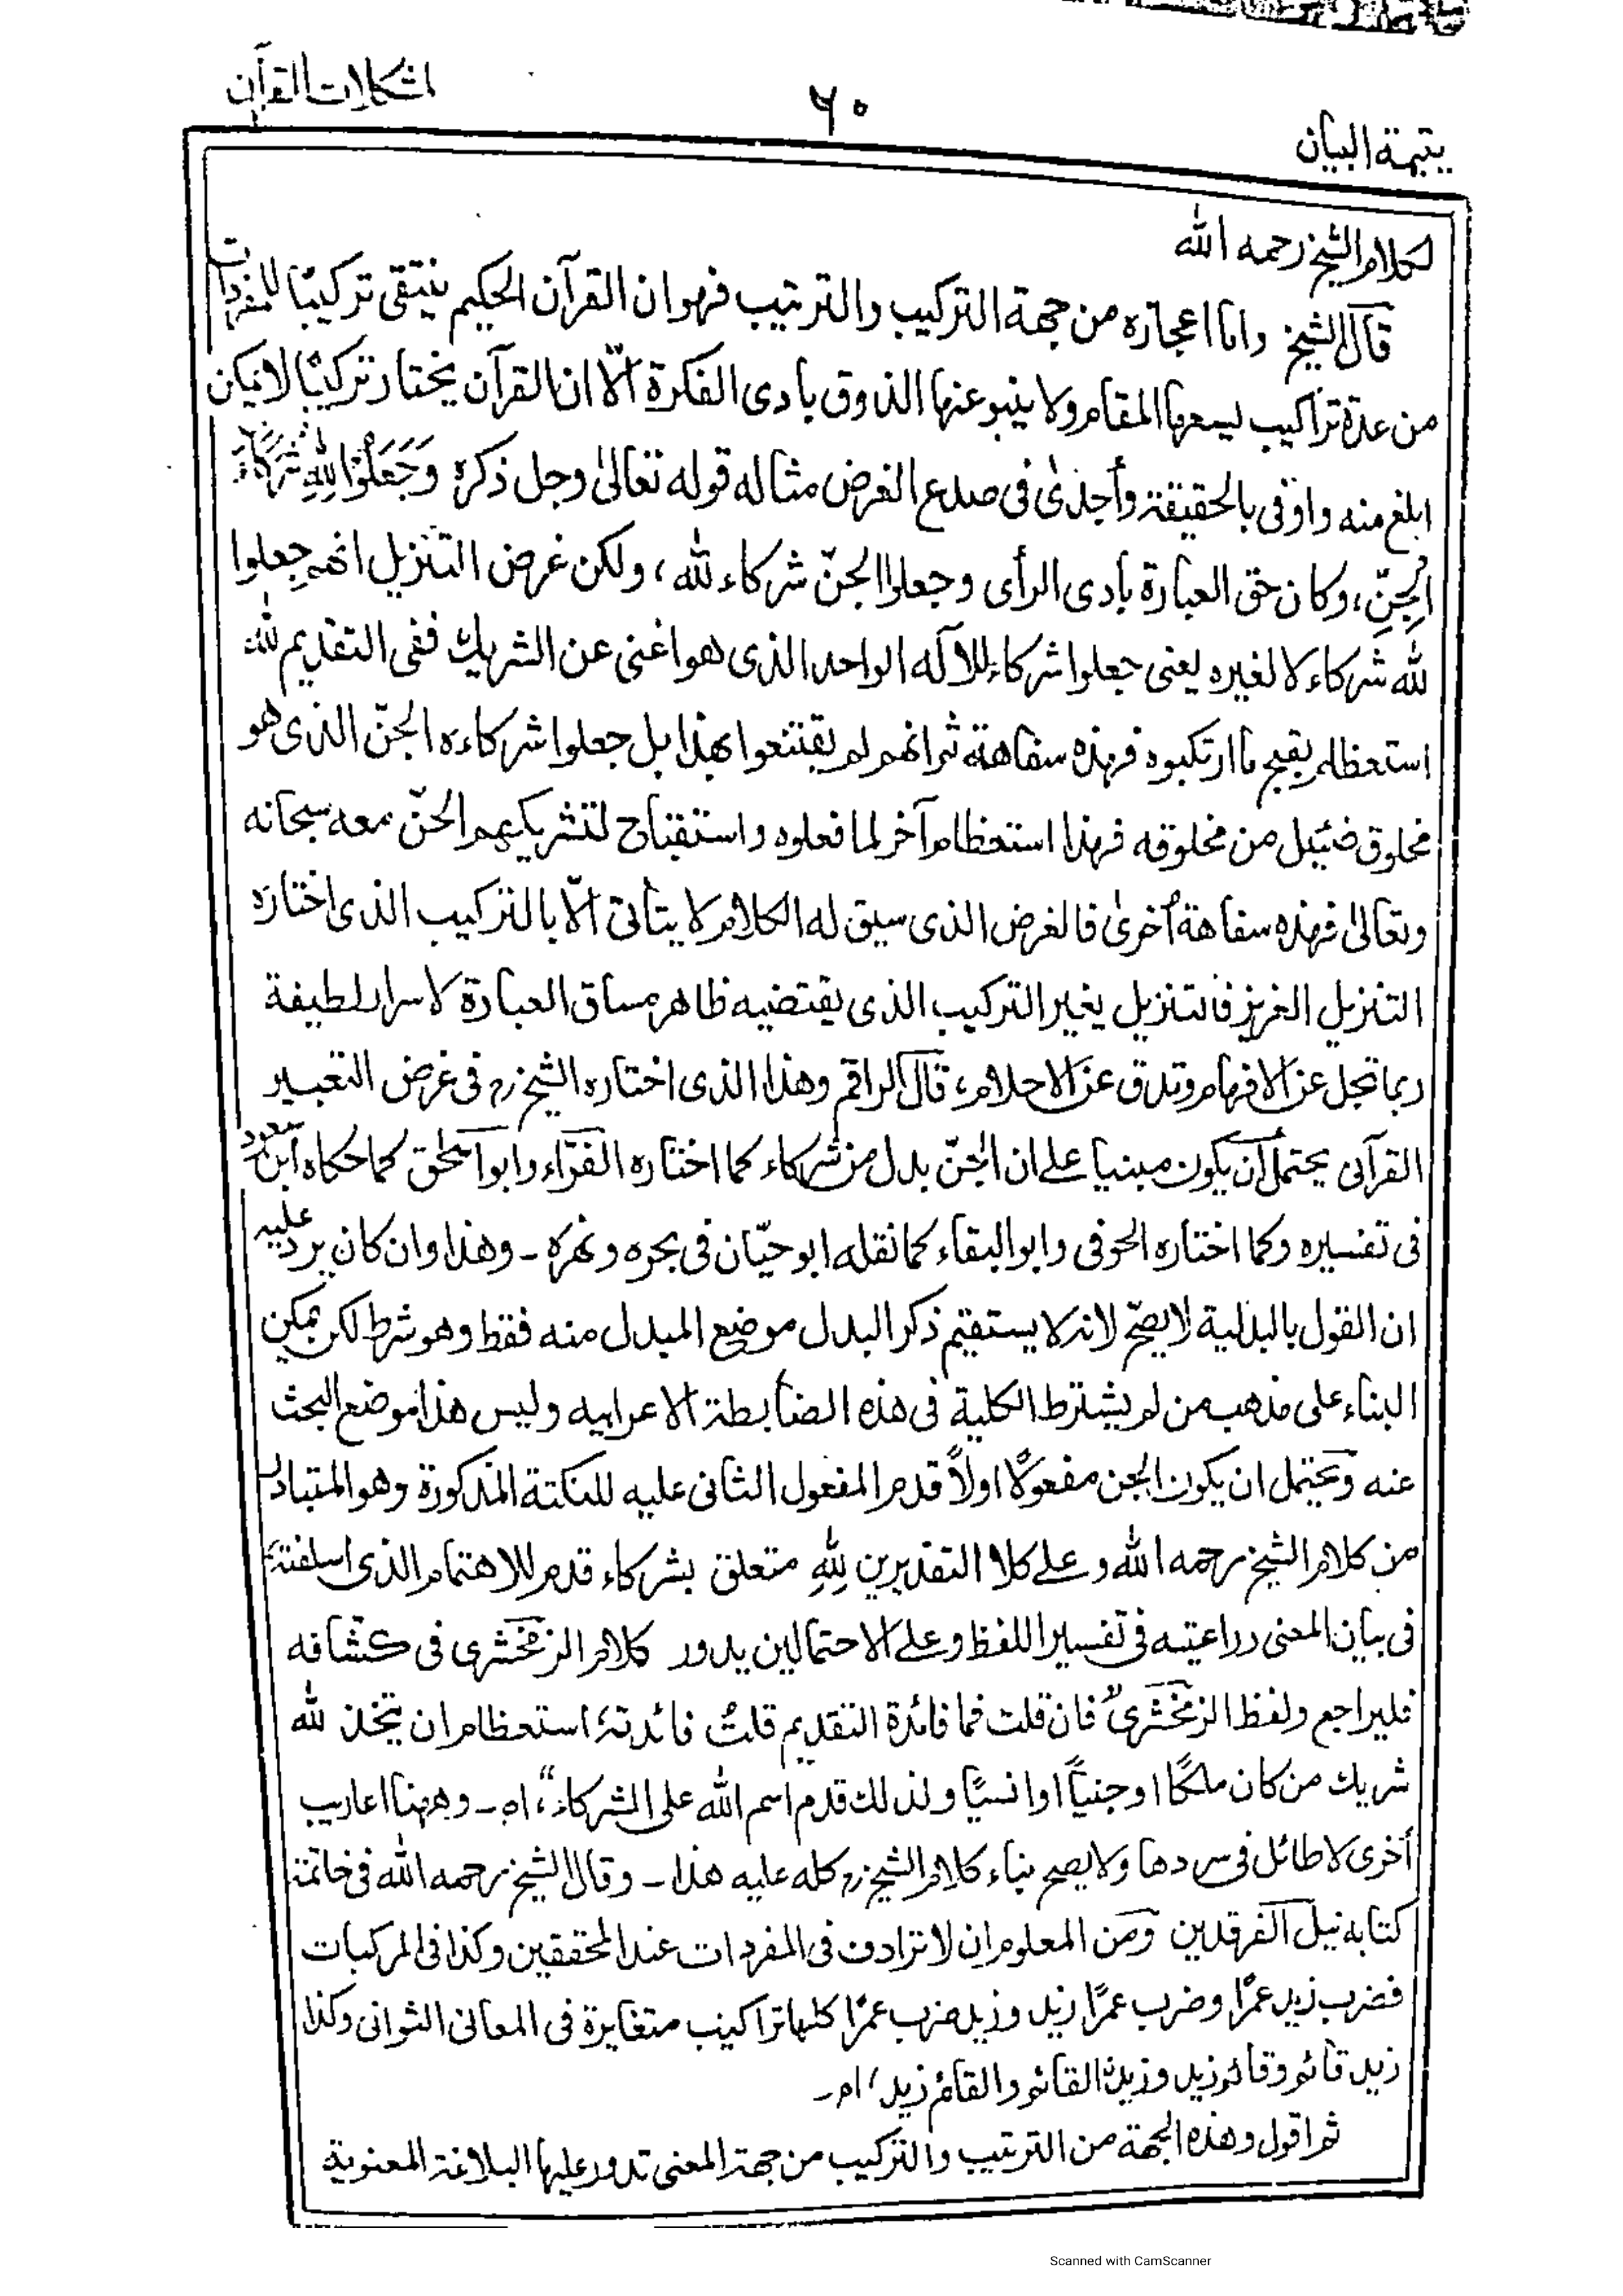 مشكلات القرآن
٦٠
يتيمة البيان
لكلام الشيخ رحمه الله
قال الشيخ واما اعجازه من جهة التركيب والترتيب فهو ان القرآن الحكيم ينتقى تركيبًا للمفردات
من عدة تراكيب يسعها المقام ولا ينبو عنها الذوق بادى الفكرة الّا ان القرآن يختار تركيبًا لا يمكن
ابلغ منه واوفى بالحقيقة وأجدىٰ فى صدع الغرض مثاله قوله تعالىٰ وجل ذكره وَجَعَلُوْا لِلّٰهِ شُرَكَاءَ
الْجِنّ، وكان حق العبارة بادى الرأى وجعلوا الجنّ شركاء لله، ولكن غرض التنزيل انهم جعلوا
لله شركاء لا لغيره يعنى جعلوا شركاء للاله الواحد الذى هو اغنى عن الشريك ففى التقديم لله
استعظام بقبح ما ارتكبوه فهذه سفاهة ثم انهم لم يقتنعوا بهذا بل جعلوا شركاءه الجنّ الذى هو
مخلوق ضئيل من مخلوقه فهذا استعظام آخر لما فعلوه واستقباح لتشريكهم الجنّ معه سبحانه
وتعالىٰ فهذه سفاهة أُخرىٰ فالغرض الذى سيق له الكلام لا يتأتى الّا بالتركيب الذى اختاره
التنزيل العزيز فالتنزيل يغير التركيب الذى يقتضيه ظاهر مساق العبارة لاسرار لطيفة
ربما تجل عن الافهام وتدق عن الاحلام، قال الراقم وهذا الذى اختاره الشيخ رح فى غرض التعبير
القرآنى يحتمل أن يكون مبنيا على ان الجنّ بدل من شركاء كما اختاره الفرّاء وابو اسحٰق كما حكاه ابن سعود
فى تفسيره وكما اختاره الحوفى وابو البقاء كما نقله ابو حيّان فى بحره ونهره ـ وهذا وان كان يرد عليه
ان القول بالبدلية لا يصحّ لانه لا يستقيم ذكر البدل موضع المبدل منه فقط وهو شرط لكن يمكن
البناء على مذهب من لم يشترط الكلية فى هذه الضابطة الاعرابيه وليس هذا موضع البحث
عنه ويحتمل ان يكون الجن مفعولًا اولًا قدم المفعول الثانى عليه للنكتة المذكورة وهو المتبادر
من كلام الشيخ رحمه الله وعلى كلا التقديرين لِلّٰهِ متعلق بشركاء قدم للاهتمام الذى اسلفته
فى بيان المعنى وراعيته فى تفسير اللفظ وعلى الاحتمالين يدور كلام الزمخشرى فى كشافه
فليراجع ولفظ الزمخشرىؒ فان قلت فما فائدة التقديم قلتُ فائدته استعظام ان يتخذ لله
شريك من كان ملكًا او جنيًا او انسيًا ولذلك قدم اسم الله على الشركاء، اه ـ وههنا اعاريب
أخرى لا طائل فى سردها ولا يصح بناء كلام الشيخ رح كله عليه هذا ـ وقال الشيخ رحمه الله فى خاتمة
كتابه نيل الفرقدين ومن المعلوم ان لا ترادف فى المفردات عند المحققين وكذا فى المركبات
فضرب زيد عمرًا وضرب عمرًا زيد وزيد ضرب عمرًا كلها تراكيب متغايرة فى المعانى الثوانى وكذا
زيد قائم وقائم زيد وزيد القائم والقائم زيد، اه ـ
ثم اقول وهذه الجهة من الترتيب والتركيب من جهة المعنى تدور عليها البلاغة المعنوية
Scanned with CamScanner